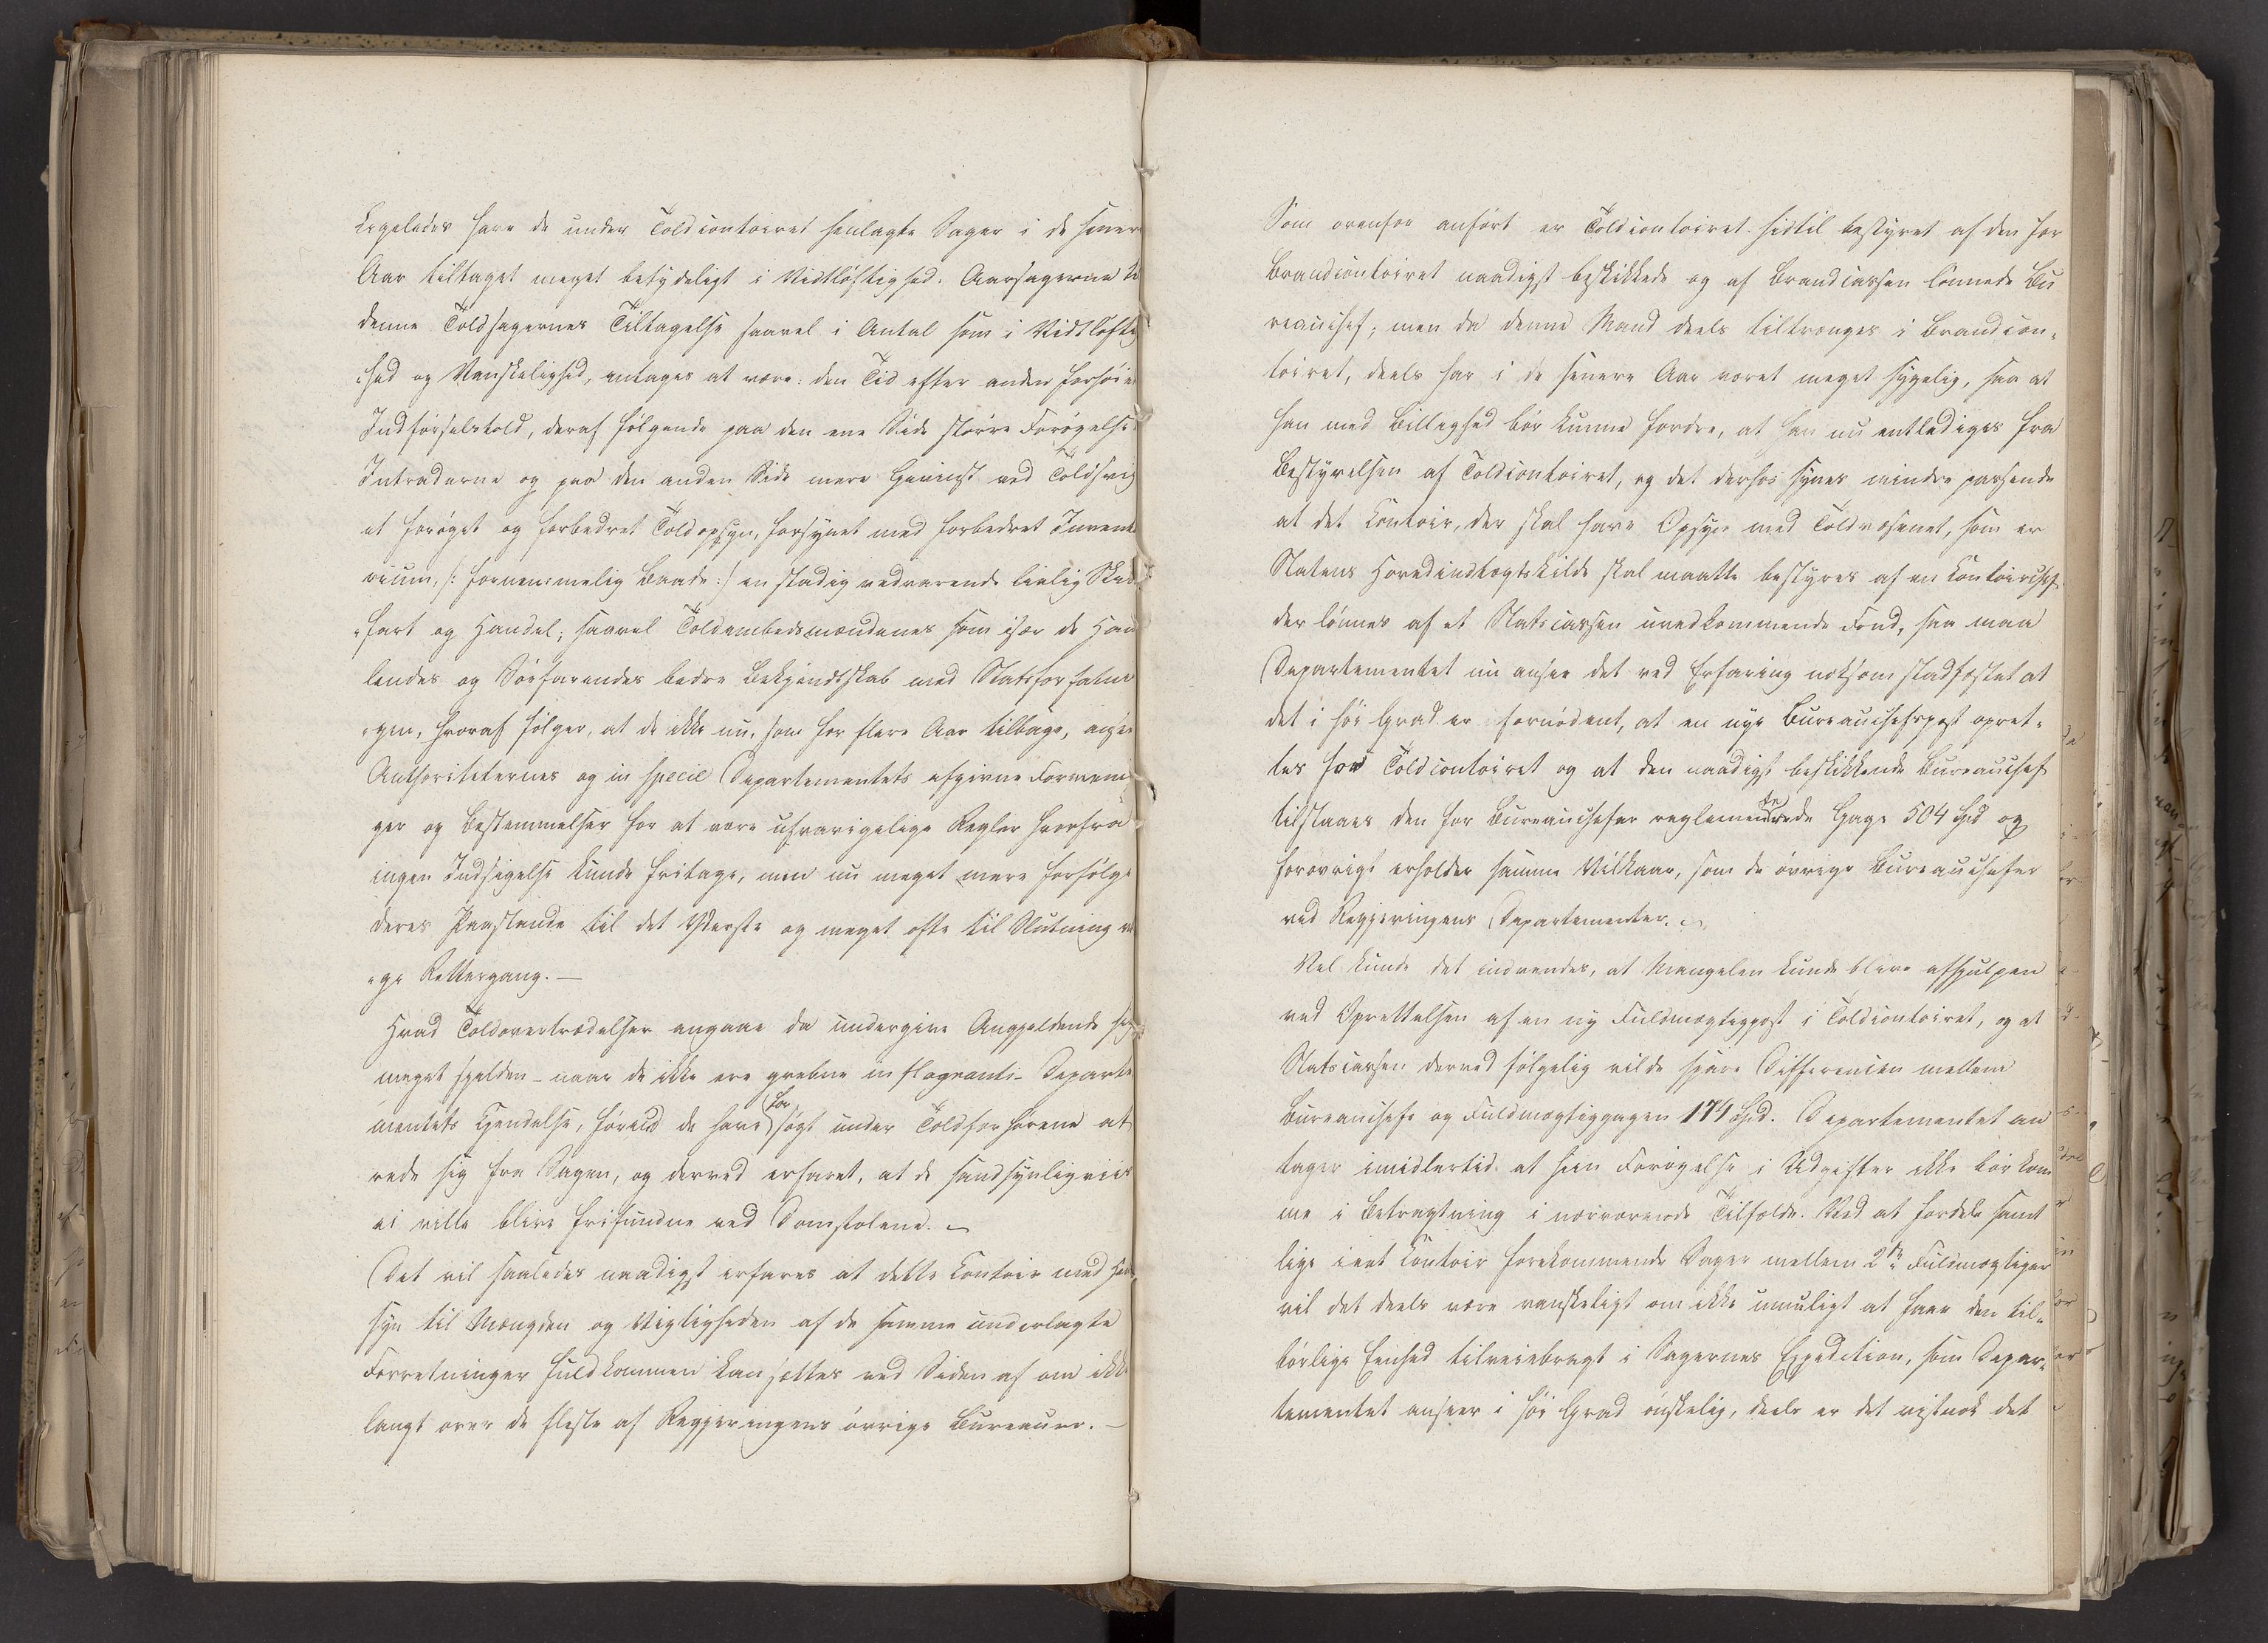 Ligeledes have de under Toldcontoiret henlagte Sager i de sener
Aar tiltaget meget betydeligt i Vidtløftighed. Aarsagerne te
denne Toldsagernes Tiltagelse saavel i Antal som i Vidtløftig
hed og Vanskelighed, antages at være: den Tid efter anden forhøie
Indførselstold, deraf følgende paa den ene Side større Forøgelse
Intraderne og paa den anden Side mere Gevinst ved Toldsvig
et forøget og forbedret Toldopsyn, forsynet med forbedret Invent
rium, /: fornemmelig Baade :/ en stadig vedvarende livlig Skib
"fart og Handel; saavel Toldembedsmændenes som især de Han
lendes og Søefarendes bedre Bekjendtskab med Statsforfatni
"gen, hvoraf følger, at de ikke nu, som for flere Aar tilbage, ansee
Authoriteternes og in specie Departementets afgivne Formenin
ger og Bestemmelser for at være ufravigelige Regler hvorfra
ingen Indsigelse kunde fritage, men nu meget mere forfølge
deres Paastande til det Yderste og meget ofte til Slutning ve
"ge Rettergang. —
Hvad Toldovertrædelser angaae da undergive Angjeldende sig
meget sjelden - naar de ikke ere grebne in flagranti - Departe
mentets Kjendelse, førend de have forsøgt under Toldforhørene at
rede sig fra Sagen, og derved erfaret, at de sandsynligviis
ei ville blive frifundne ved Domstolene. —
Det vil saaledes naadigst erfares at dette Contoir med Hen
syn til Mængden og Vigtigheden af de samme underlagte
Forretninger fuldkommen kan sættes ved Siden af om ikke
langt over de fleste af Regjeringens øvrige Bureauer. —
Som ovenfor anført er Toldcontoiret hidtil bestyret af den for
Brandcontoiret naadigst beskikkede og af Brandcassen lønnede Bu
reauchef; men da denne Mand deels tiltrænges i Brandcon=
toiret, deels har i de senere Aar været meget sygelig, saa at
han med Billighed bør kunne fordre, at han nu entlediges fra
Bestyrelsen af Toldcontoiret, og det derhos synes mindre passende
at det Contoir, der skal have Opsyn med Toldvæsenet, som er
Statens Hovedindtægtskilde skal maatte bestyres af en Contoirchef
der lønnes af et Statscassen uvedkommende Fond, saa maa
Departementet nu ansee det ved Erfaring noksom stadfæstet at
det i høi Grad er fornødent, at en nye Bureauchefspost opret=
tes for Toldcontoiret og at den naadigst beskikkende Bureauchef
tilstaaes den for Bureauchefer reglementerede Gage 504 Spd og
forøvrigt erholder samme Vilkaar, som de øvrige Bureauchefer
ved Regjeringens Departementer. —
Vel kunde det indvendes, at Mangelen kunde blive afhjulpen
ved Oprettelsen af en ny Fuldmægtigpost i Toldcontoiret, og at
Statscassen derved følgelig vilde spare Differencen mellem
Bureauchefs og Fuldmægtiggagen 174 Spd. Departementet an
tager imidlertid at hiin Forøgelse i Udgifter ikke bør kom
me i Betragtning i nærværende Tilfælde. Ved at fordele samt
lige i eet Contoir forekommende Sager mellem 2de Fuldmægtiger
vil det deels være vanskeligt om ikke umuligt at faae den til=
børlige Eenhed tilveiebragt i Sagernes Expedition, som Depar=
tementet anseer i høi Grad ønskelig, deels er det vistnok det